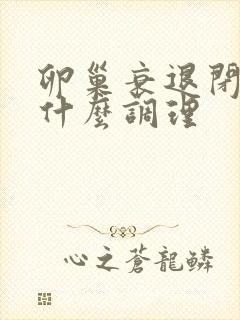 卵巢衰退閉
什麼調理
心之蒼龍鱗